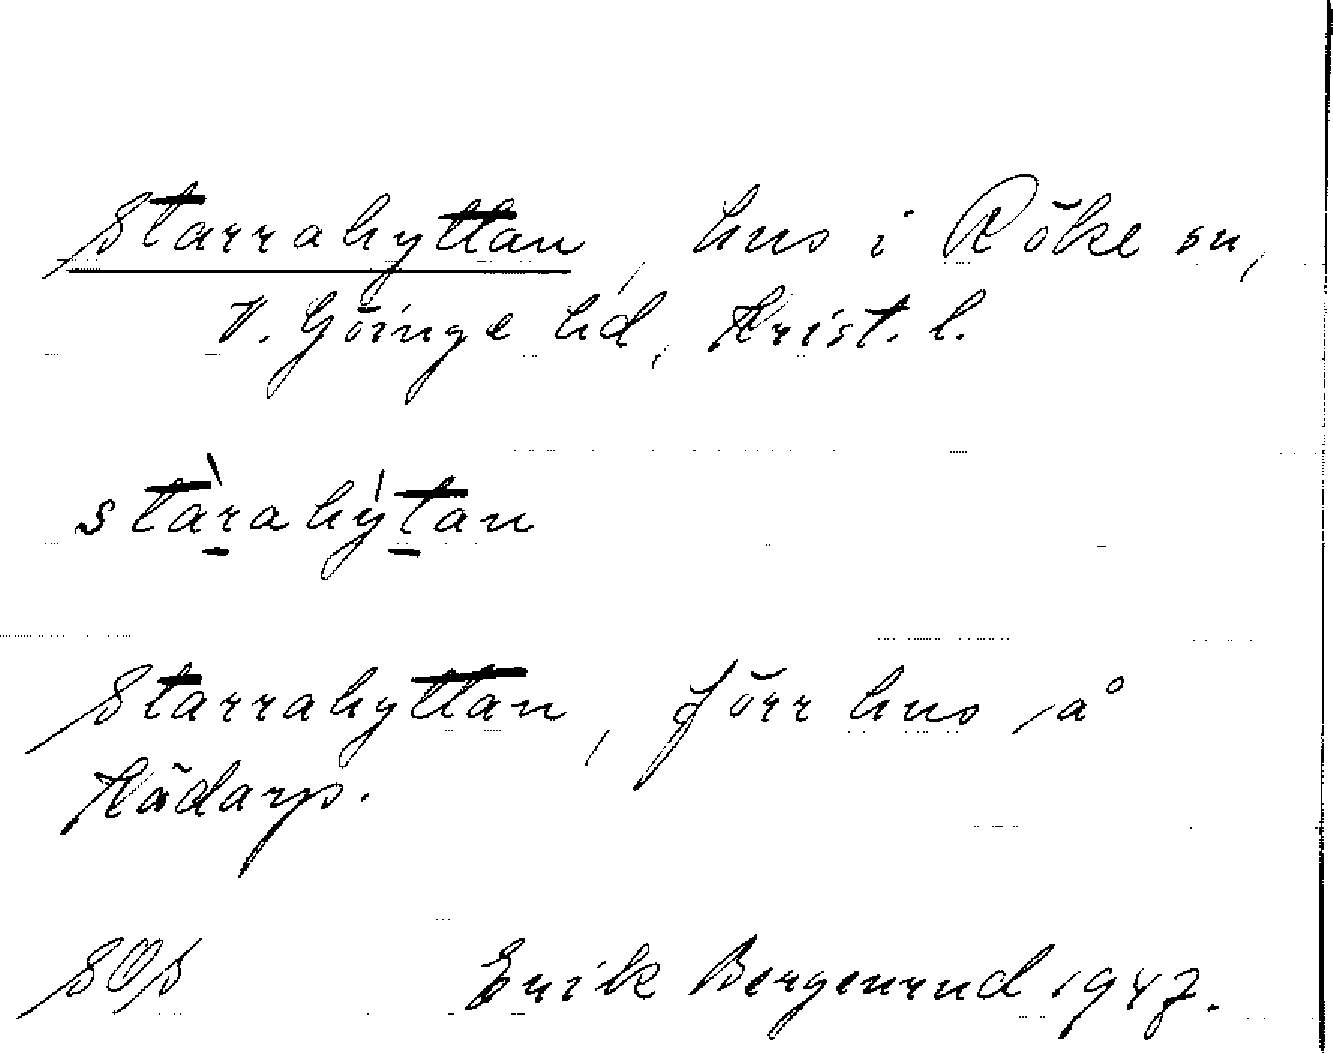 Starrahyttan, hus i Röke sn,
V. Göinge hd, Krist. l.
stàrahy̍tan
Starrahyttan, förr hus på
Kädarp.
SOS Erik Bergenrud 1947.